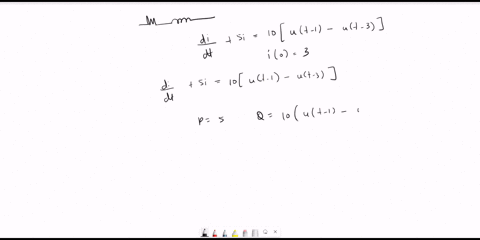 di/dt + 5i = 10[u(t-1) - u(t-3)]
i(0) = 3
di/dt + 5i = 10[u(t-1) - u(t-3)]
P = 5 Q = 10(u(t-1) -